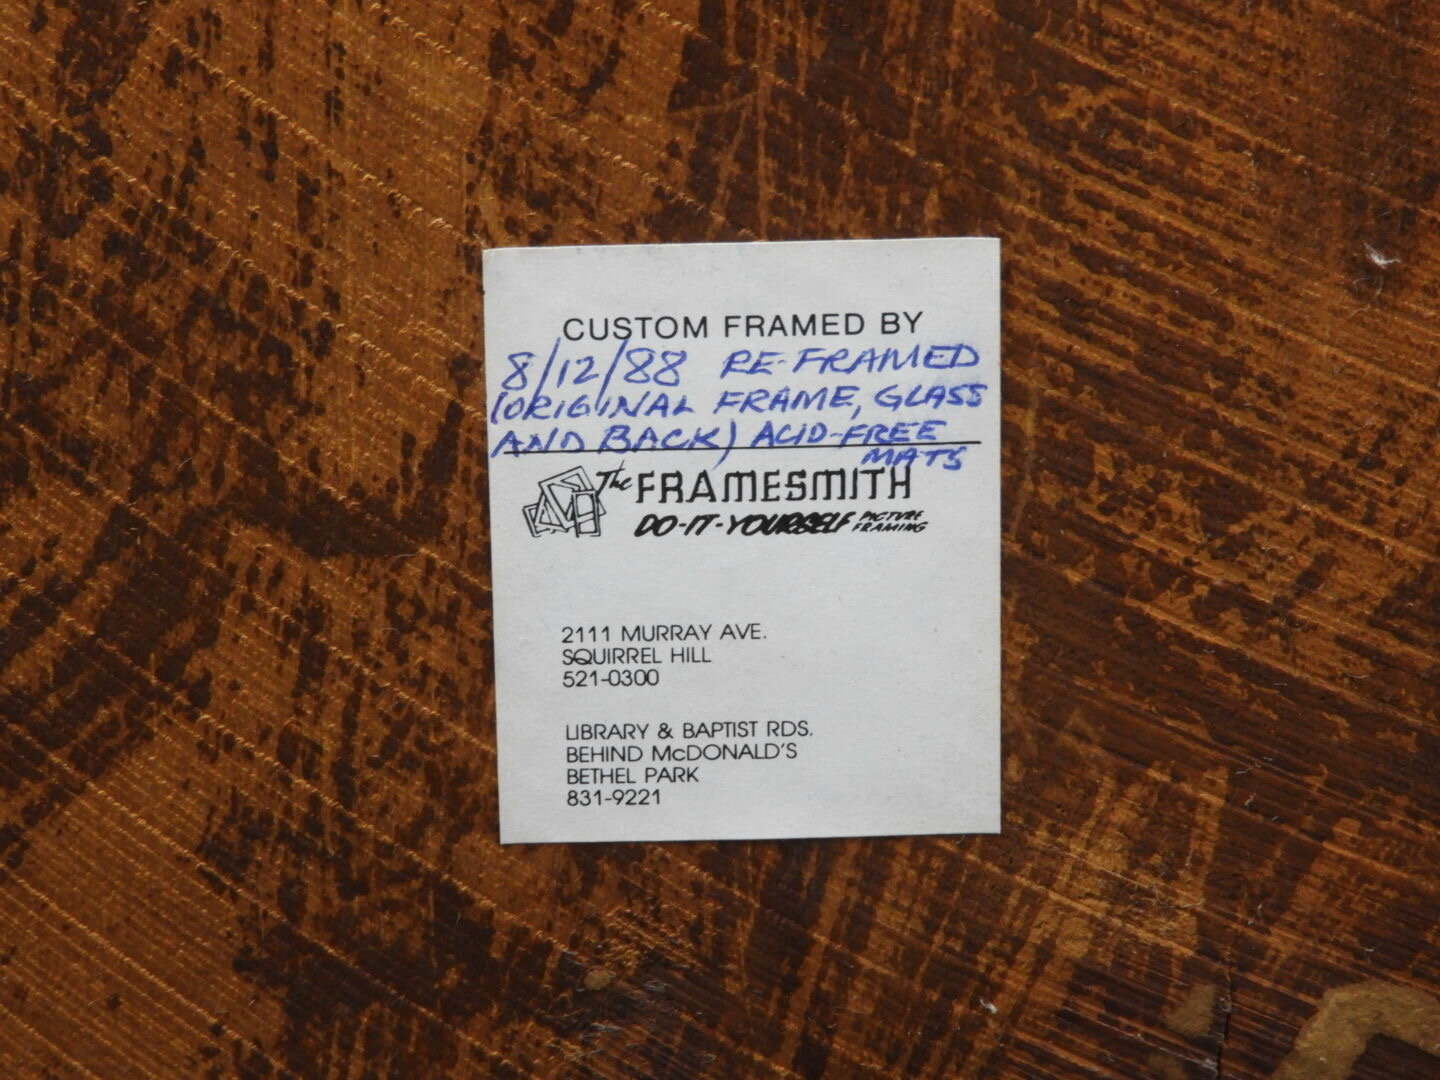 CUSTOM FRAMED BY
8/12/88 RE-FRAMED
(ORIGINAL FRAME, GLASS
AND BACK) ACID-FREE
MATS
The FRAMESMITH
DO-IT-YOURSELF PICTURE FRAMING
2111 MURRAY AVE.
SQUIRREL HILL
521-0300
LIBRARY & BAPTIST RDS.
BEHIND McDONALD'S
BETHEL PARK
831-9221